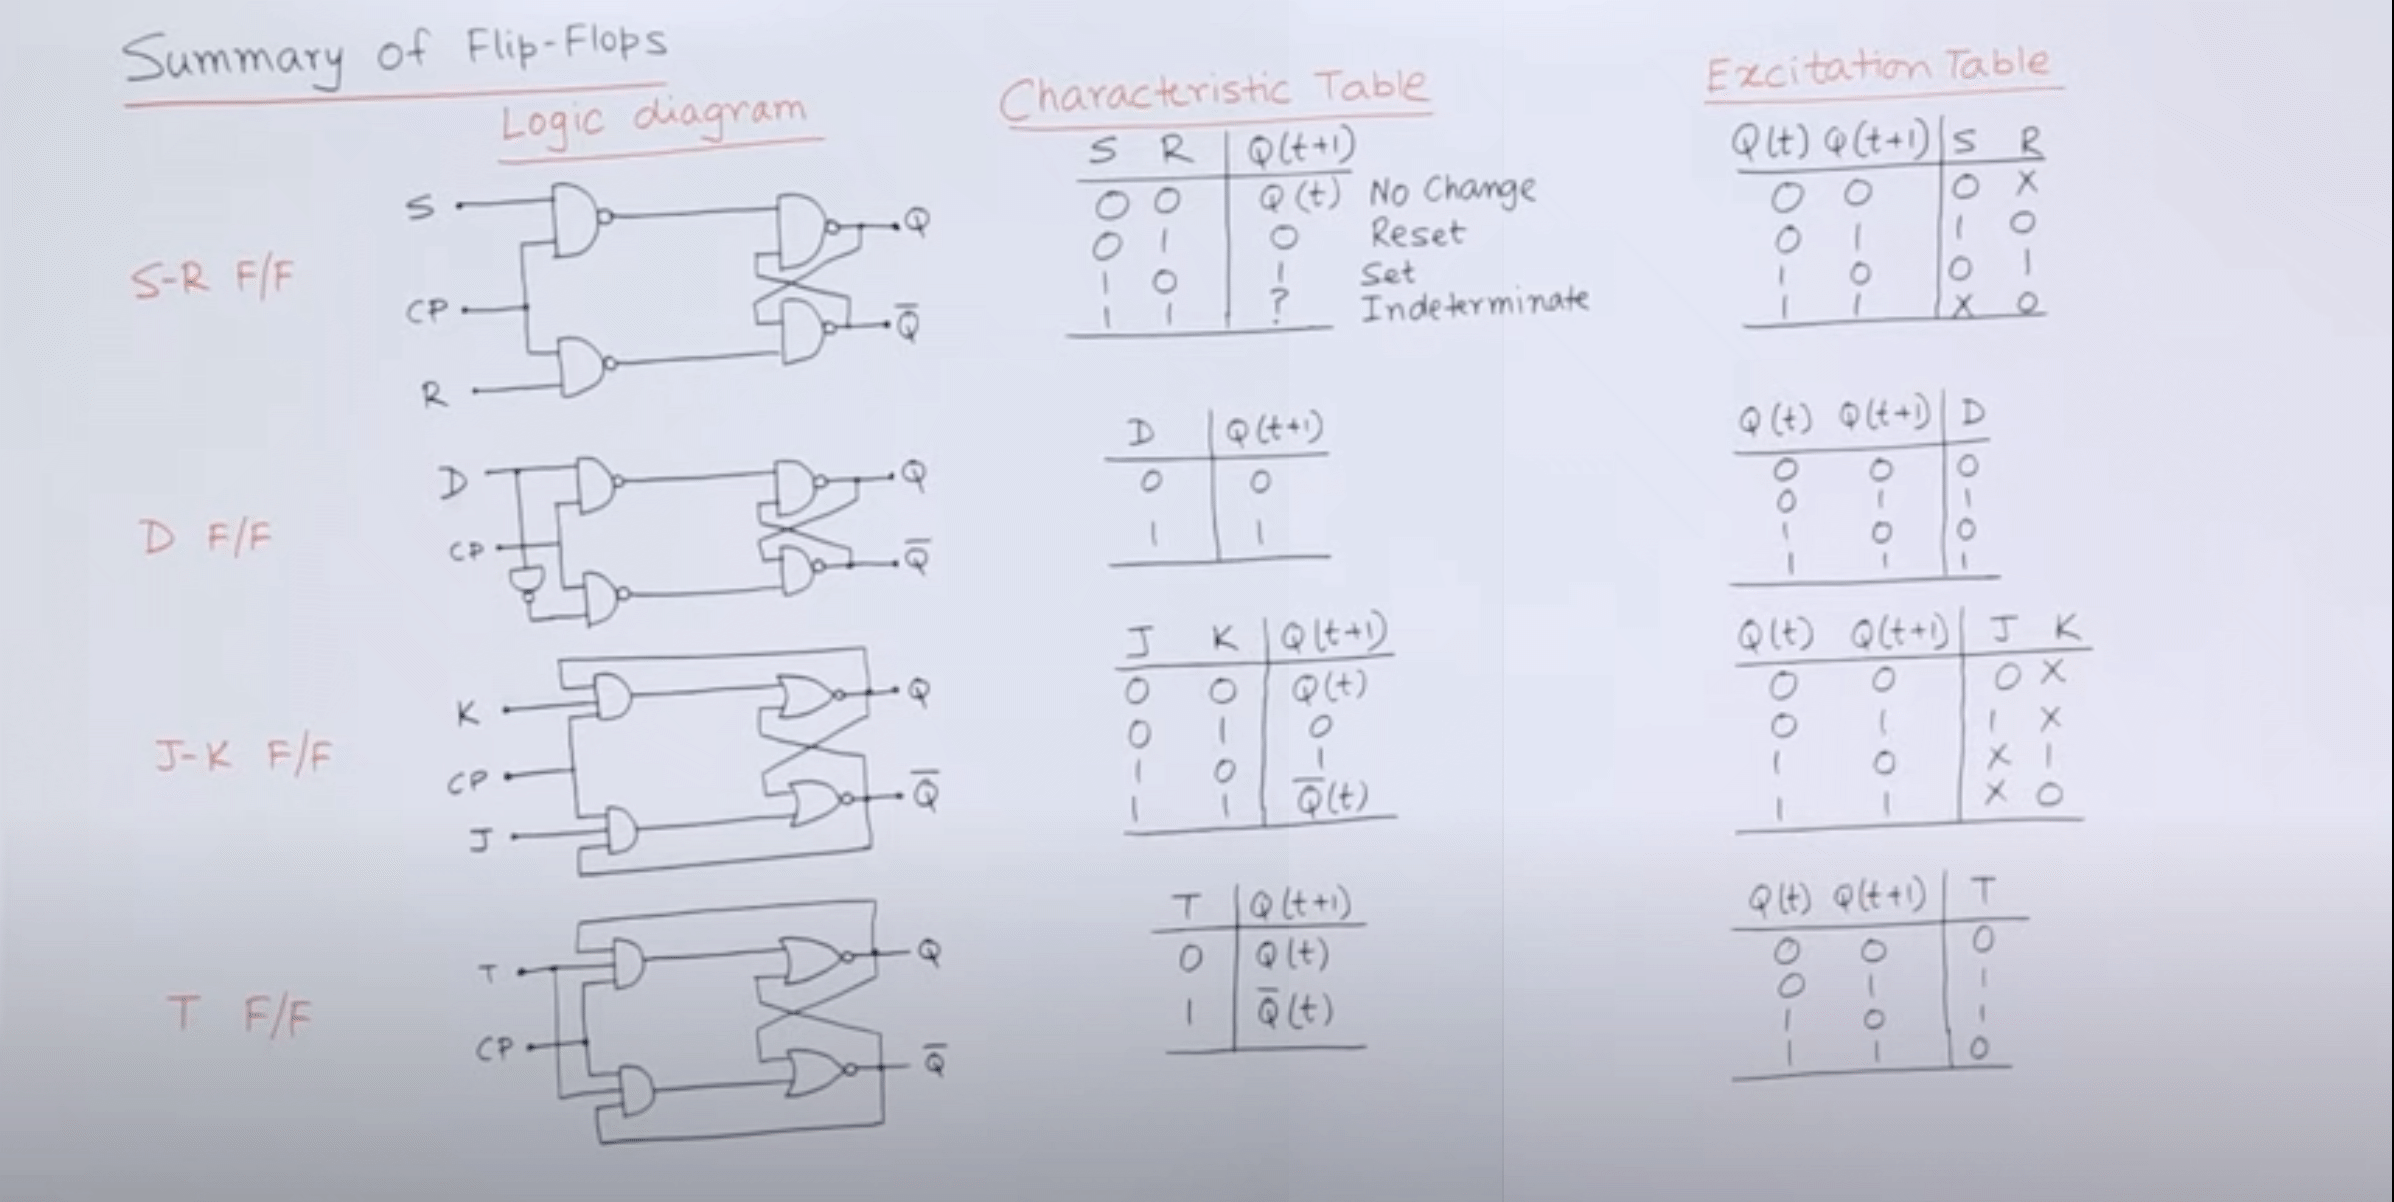 Summary of Flip-Flops
Logic diagram
Characteristic Table
Excitation Table
S-R F/F
S
CP
R
Q
Q̅
S R Q(t+1)
0 0 Q(t) No Change
0 1 0 Reset
1 0 1 Set
1 1 ? Indeterminate
Q(t) Q(t+1) S R
0 0 0 X
0 1 1 0
1 0 0 1
1 1 X 0
D F/F
D
CP
Q
Q̅
D Q(t+1)
0 0
1 1
Q(t) Q(t+1) D
0 0 0
0 1 1
1 0 0
1 1 1
J-K F/F
K
CP
J
Q
Q̅
J K Q(t+1)
0 0 Q(t)
0 1 0
1 0 1
1 1 Q̅(t)
Q(t) Q(t+1) J K
0 0 0 X
0 1 1 X
1 0 X 1
1 1 X 0
T F/F
T
CP
Q
Q̅
T Q(t+1)
0 Q(t)
1 Q̅(t)
Q(t) Q(t+1) T
0 0 0
0 1 1
1 0 1
1 1 0